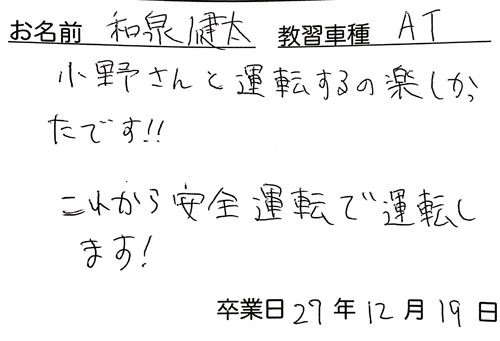 お名前 和泉健太 教習車種 AT
小野さんと運転するの楽しかっ
たです!!
これから安全運転で運転し
ます!
卒業日27年12月19日